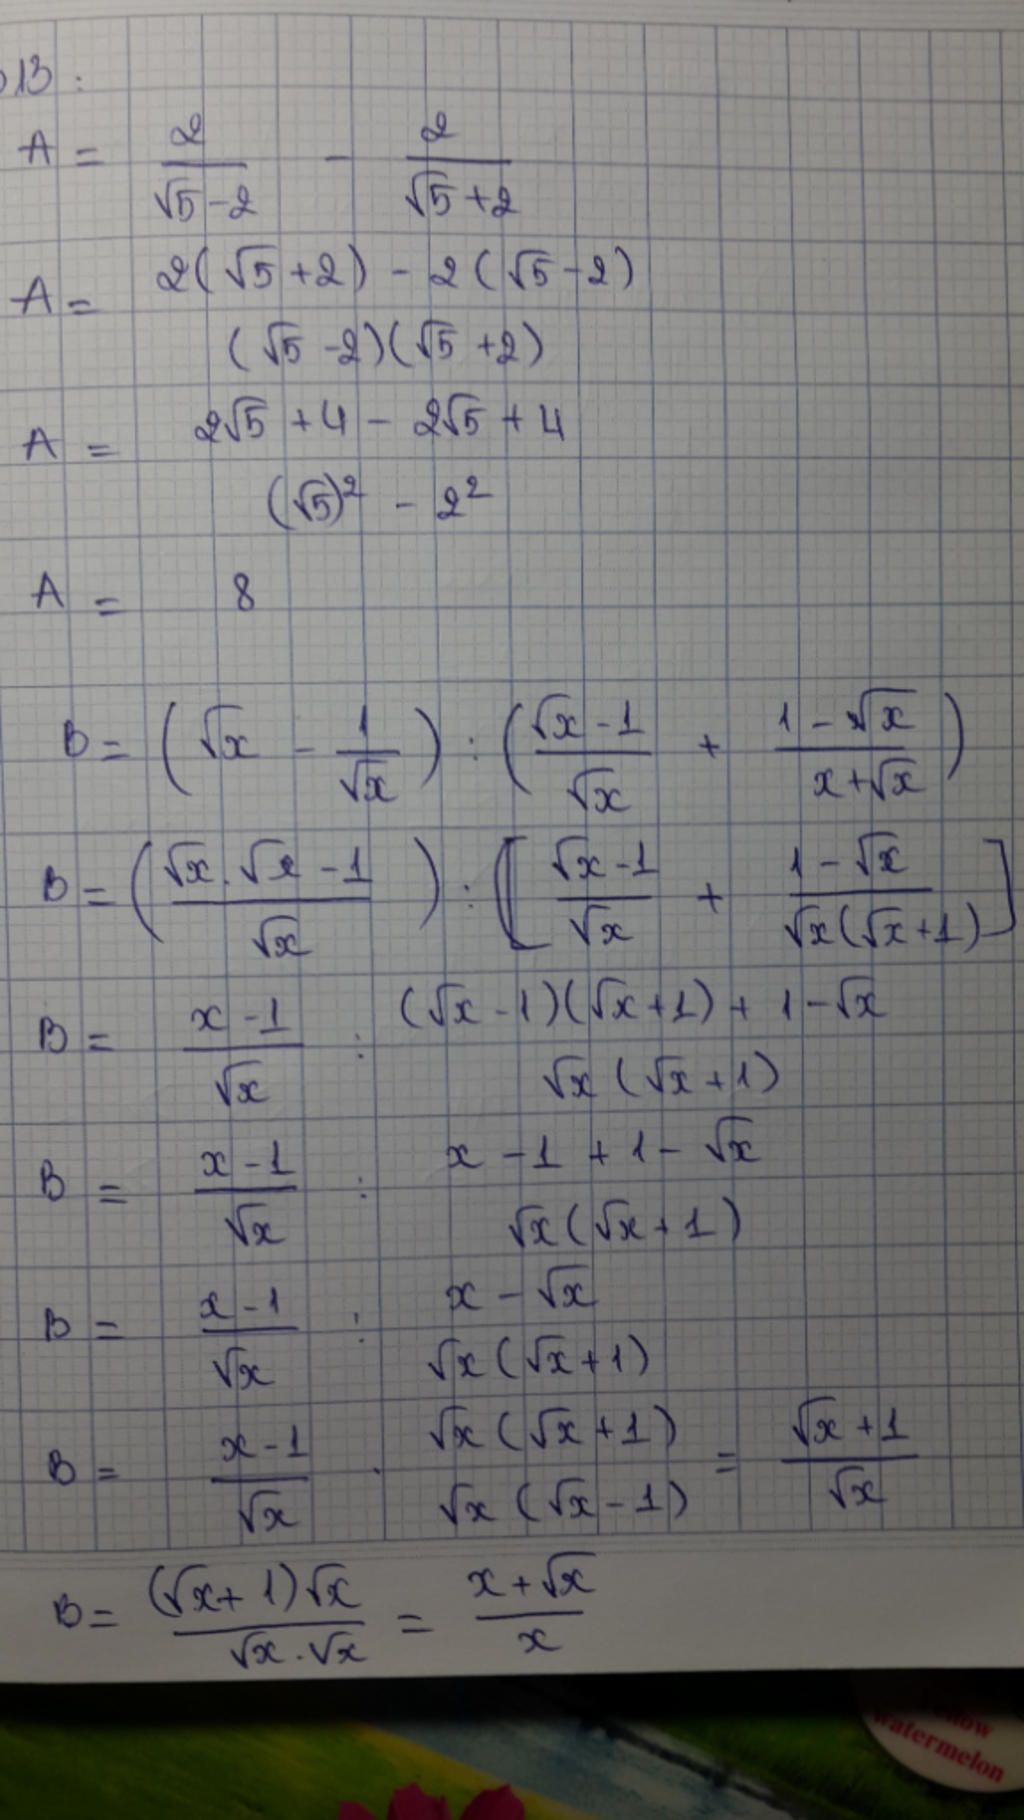 13:
A = 2/(√5-2) - 2/(√5+2)
A = (2(√5+2) - 2(√5-2))/((√5-2)(√5+2))
A = (2√5+4-2√5+4)/((√5)² - 2²)
A = 8
B = (√x - 1/√x) : ((√x-1)/√x + (1-√x)/(x+√x))
B = ((√x.√x-1)/√x) : [(√x-1)/√x + (1-√x)/(√x(√x+1))]
B = (x-1)/√x : ((√x-1)(√x+1)+1-√x)/(√x(√x+1))
B = (x-1)/√x : (x-1+1-√x)/(√x(√x+1))
B = (x-1)/√x : (x-√x)/(√x(√x+1))
B = (x-1)/√x . (√x(√x+1))/(√x(√x-1)) = (√x+1)/√x
B = ((√x+1)√x)/(√x.√x) = (x+√x)/x
watermelon